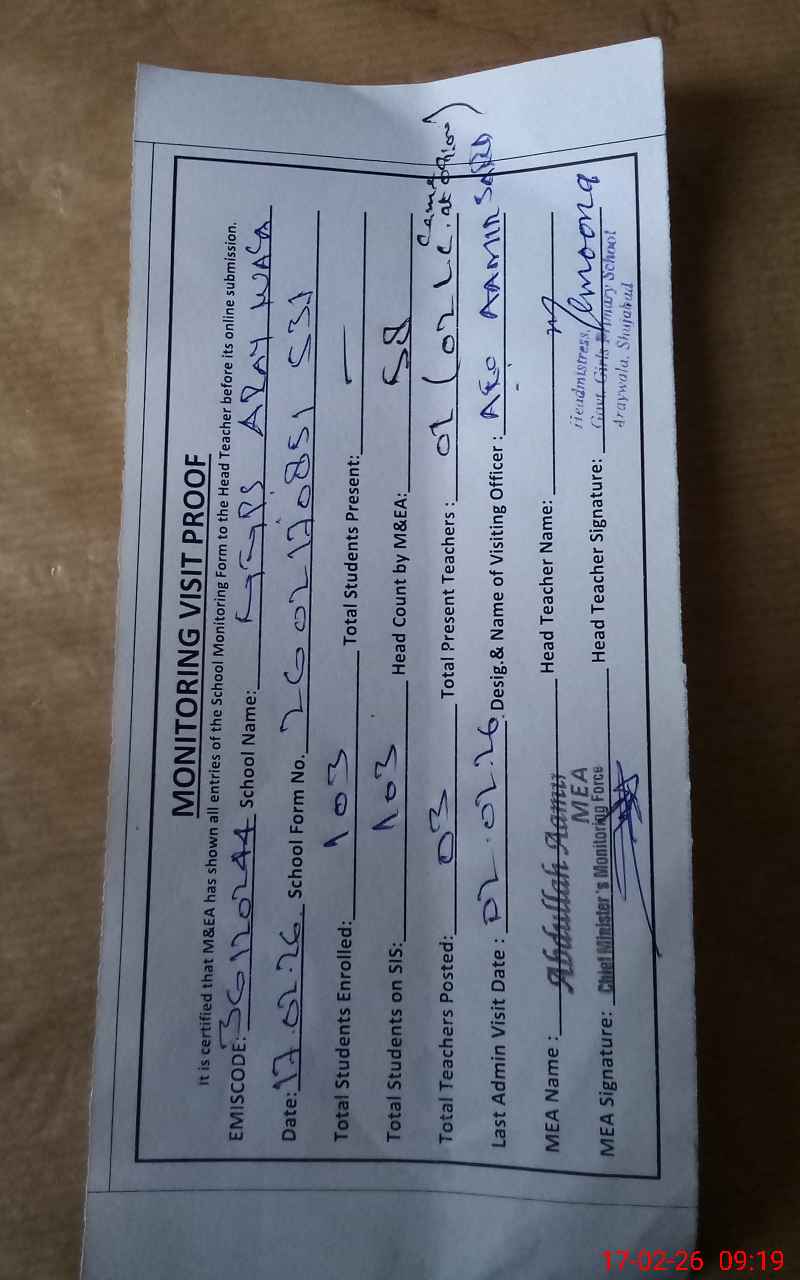 MONITORING VISIT PROOF
It is certified that M&EA has shown all entries of the School Monitoring Form to the Head Teacher before its online submission.
EMISCODE: 36120244 School Name: GGPS ARAY WALA
Date: 17.02.26. School Form No. 2602170851 531
Total Students Enrolled: 103 Total Students Present: —
Total Students on SIS: 103 Head Count by M&EA: 58
Total Teachers Posted: 03 Total Present Teachers : 02 (02 L.C. Came at 09:00)
Last Admin Visit Date : 02.02.26 Desig.& Name of Visiting Officer : AEO AAMIR SAEED
MEA Name : Abdullah Aamir Head Teacher Name:
MEA
MEA Signature: Chief Minister's Monitoring Force Head Teacher Signature:
Headmistress,
Govt. Girls Primary School
Araywala, Shujabad
17-02-26 09:19